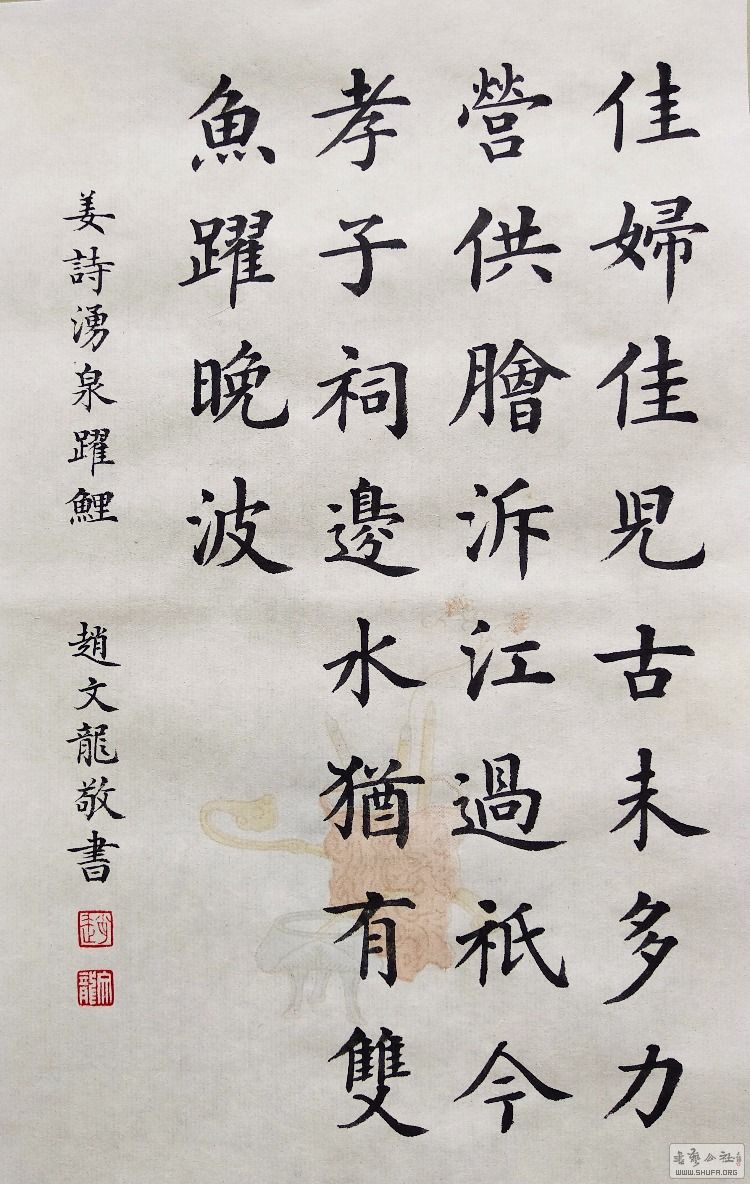 佳婦佳児古未多力
營供膾泝江過祇今
孝子祠邊水猶有雙
魚躍晚波
姜詩湧泉躍鯉
趙文龍敬書
趙
文龍
书艺公社
WWW.SHUFA.ORG